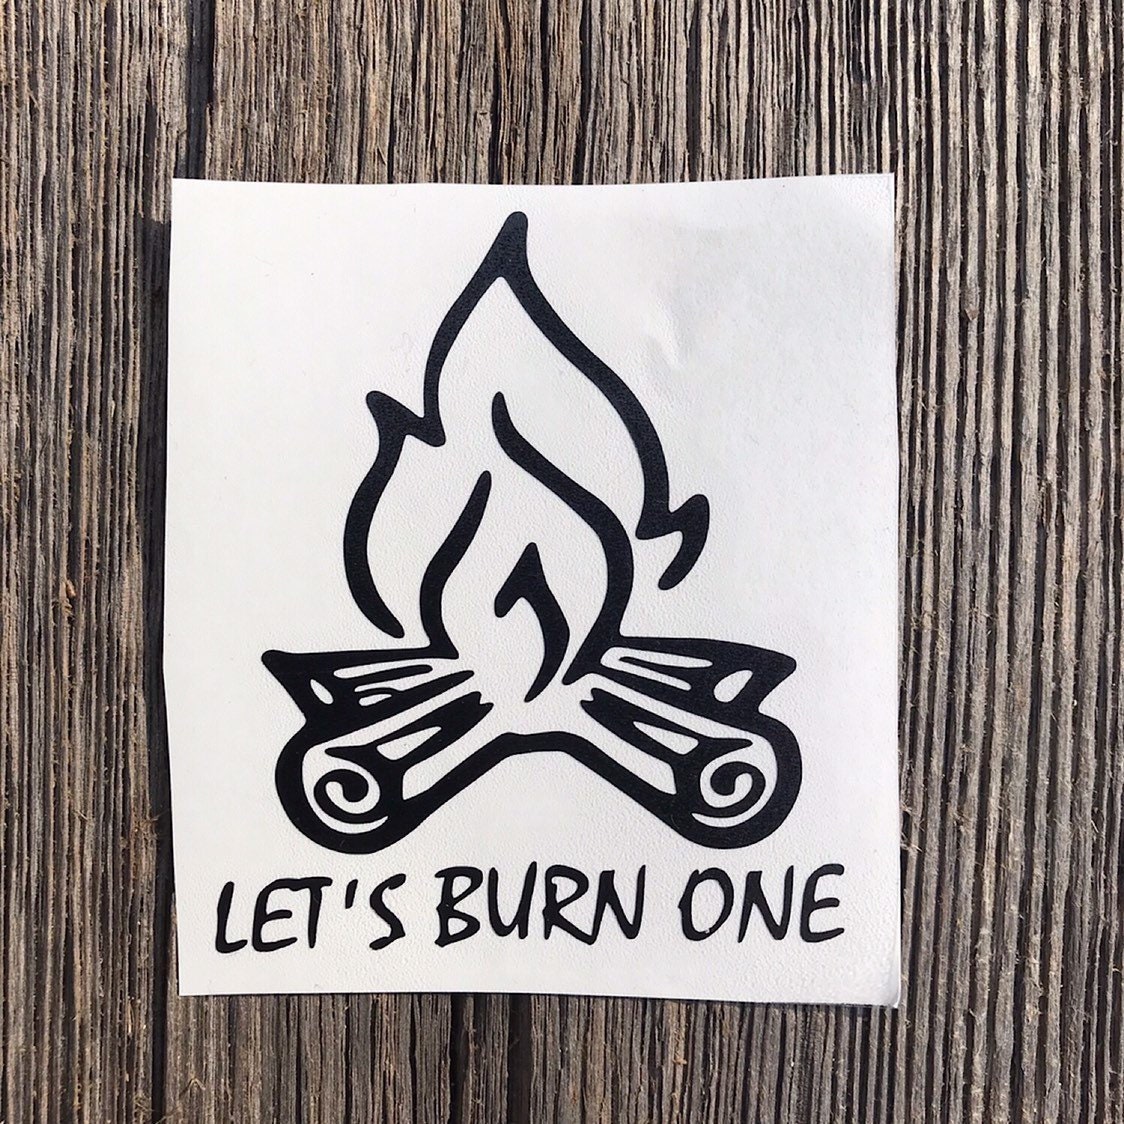 LET'S BURN ONE